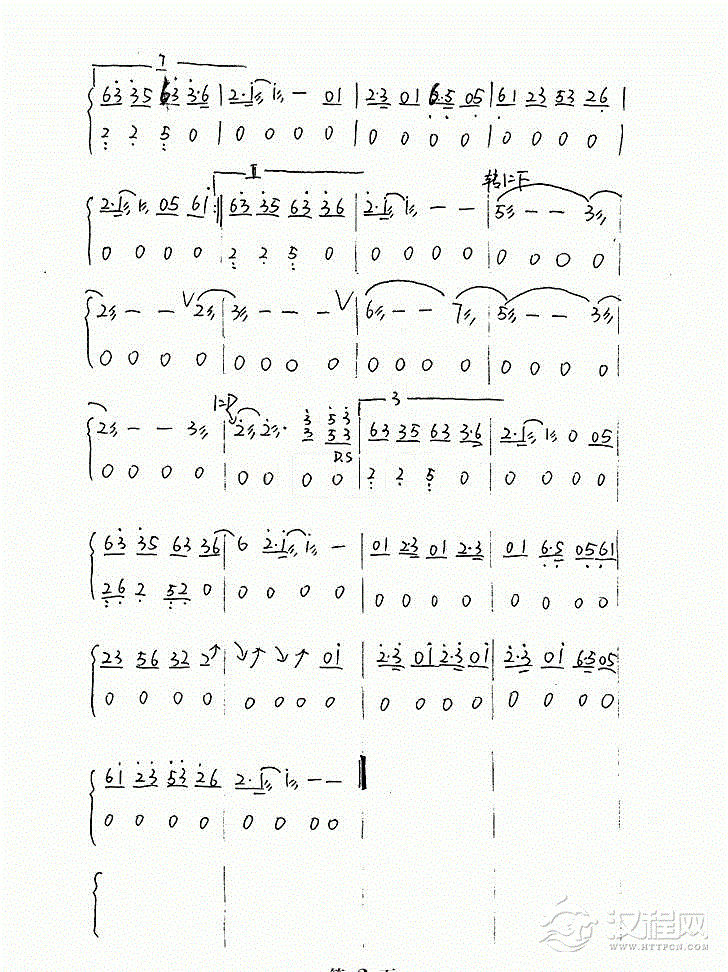 1
63 35 63 3·6 | 2·1 1 — 01 | 2·3 01 6·5 05 | 61 23 53 26 |
2 2 5 0 | 0 0 0 0 | 0 0 0 0 | 0 0 0 0 |
II 转1=F
2·1 1 05 61 :‖ 63 35 63 36 | 2·1 1 — — | 5 — — 3 |
0 0 0 0 | 2 2 5 0 | 0 0 0 0 | 0 0 0 0 |
2 — — V 2 | 3 — — — V | 6 — — 7 | 5 — — 3 |
0 0 0 0 | 0 0 0 0 | 0 0 0 0 | 0 0 0 0 |
1=D 3
2 — — 3 | 2 2· 3 53 | 63 35 63 3·6 | 2·1 1 0 05 |
3 53
D.S
0 0 0 0 | 0 0 0 0 | 2 2 5 0 | 0 0 0 0 |
63 35 63 36 | 6 2·1 1 — | 01 2·3 01 2·3 | 01 6·5 05 61 |
26 2 52 0 | 0 0 0 0 | 0 0 0 0 | 0 0 0 0 |
23 56 32 2↗ | ↘↗ ↘↗ 01 | 2·3 01 2·3 01 | 2·3 01 6·5 05 |
0 0 0 0 | 0 0 0 0 | 0 0 0 0 | 0 0 0 0 |
61 23 53 26 | 2·1 1 — — ‖
0 0 0 0 | 0 0 0 0
汉程网
WWW.HTTPCN.COM